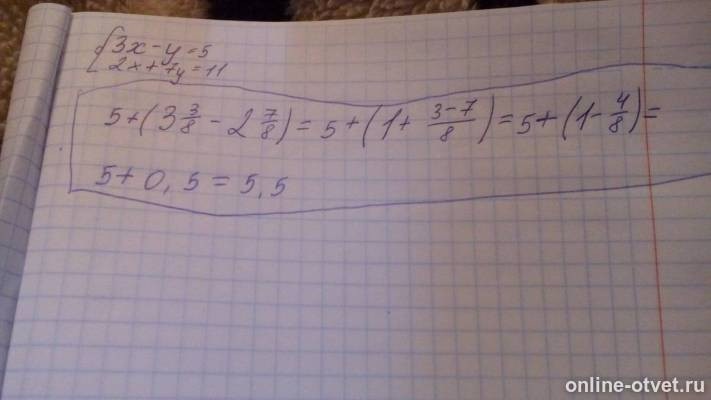 {3x-y=5
2x+7y=11
5+(3 3/8 - 2 7/8)=5+(1+ 3-7/8)=5+(1- 4/8)=
5+0,5=5,5
online-otvet.ru